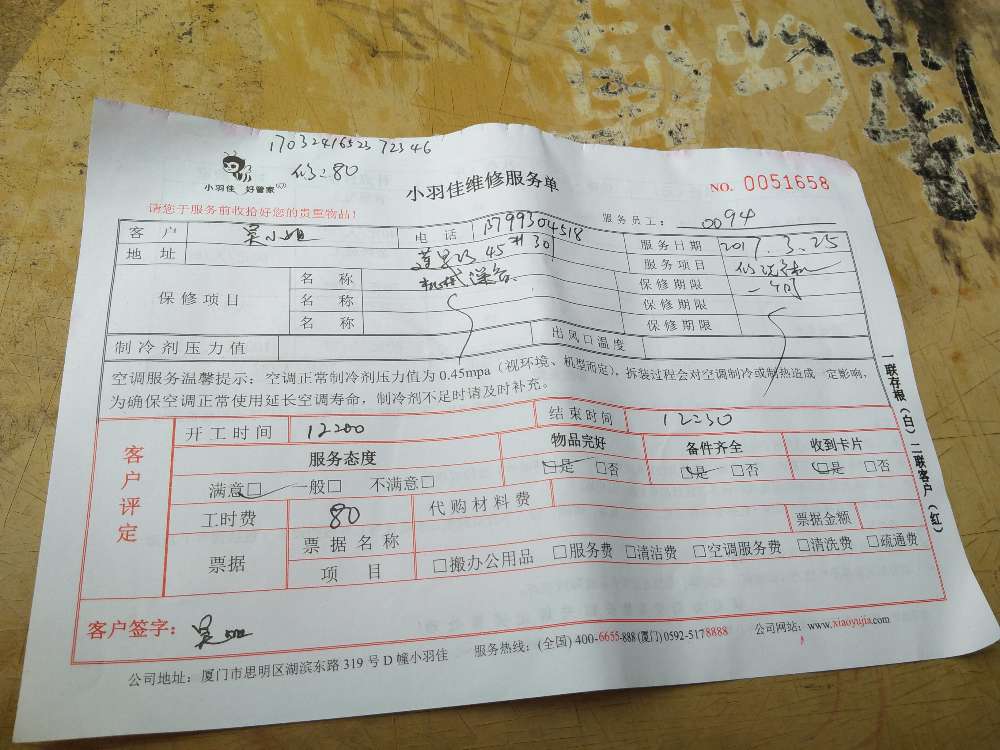 17032416523 72346
修:80
小羽佳 好管家
小羽佳维修服务单
NO. 0051658
请您于服务前收拾好您的贵重物品!
服务员工: 0094
客户 吴小姐 电话 13799304518 服务日期 2017.3.25
地址 45 30 服务项目
保修项目 名称 保修期限
名称 保修期限
名称 保修期限
制冷剂压力值 出风口温度
空调服务温馨提示:空调正常制冷剂压力值为0.45mpa(视环境、机型而定),拆装过程会对空调制冷或制热造成一定影响,
为确保空调正常使用延长空调寿命,制冷剂不足时请及时补充。
客户评定
开工时间 12:00 结束时间 12:30
服务态度 物品完好 备件齐全 收到卡片
满意□ 一般□ 不满意□ □是 □否 □是 □否 □是 □否
工时费 80 代购材料费
票据 票据名称 票据金额
项目 □搬办公用品 □服务费 □清洁费 □空调服务费 □清洗费 □疏通费
客户签字: 吴
公司地址:厦门市思明区湖滨东路319号D幢小羽佳 服务热线:(全国)400-6655-888(厦门)0592-5178888 公司网站:www.xiaoyujia.com
一联存根(白)二联客户(红)